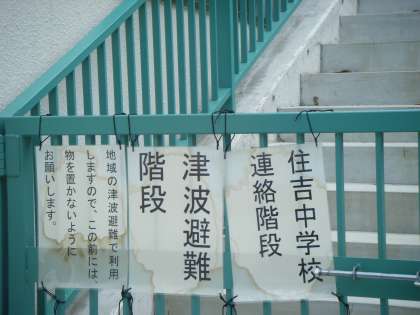 住吉中学校
連絡階段
津波避難
階段
地域の津波避難で利用
しますので、この前には、
物を置かないように
お願いします。